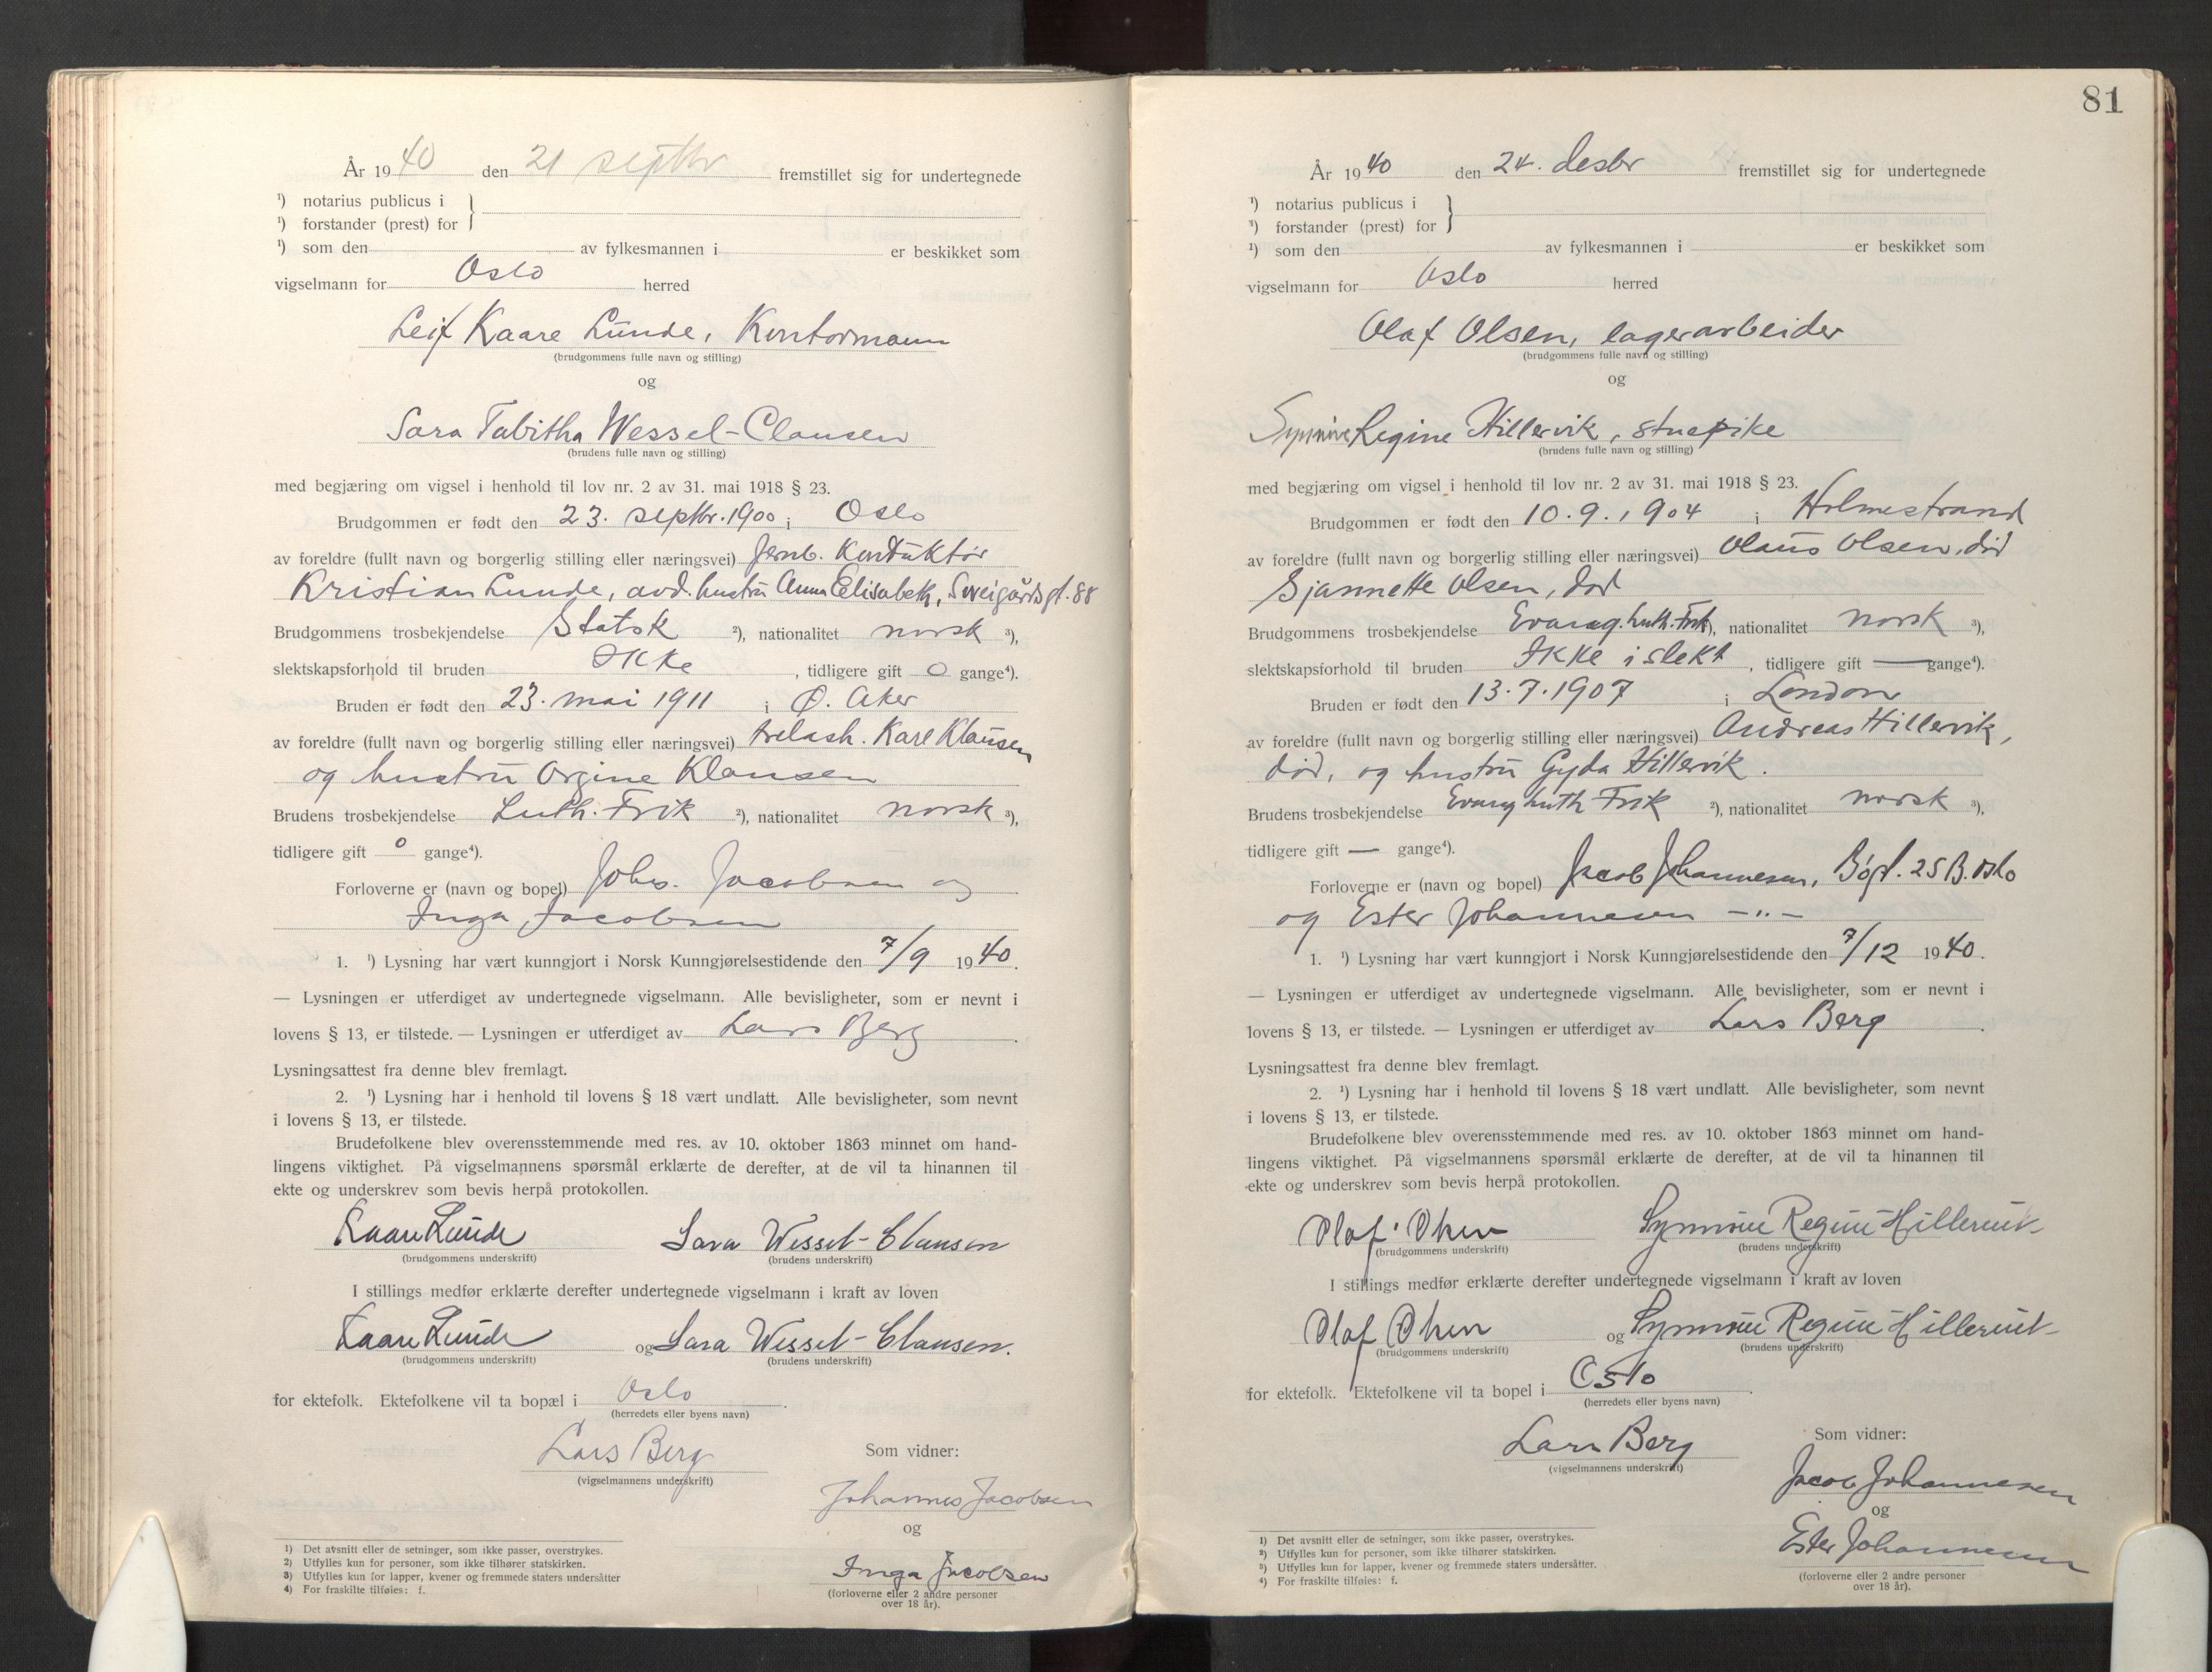 År 1940 den 21 septbr fremstillet sig for undertegnede
¹) notarius publicus i
¹) forstander (prest) for
¹) som den av fylkesmannen i er beskikket som
vigselmann for Oslo herred
Leif Kaare Lunde, Kontormann
(brudgommens fulle navn og stilling)
og
Sara Tabitha Wessel-Clausen
(brudens fulle navn og stilling)
med begjæring om vigsel i henhold til lov nr. 2 av 31. mai 1918 § 23.
Brudgommen er født den 23. septbr. 1900 i Oslo
av foreldre (fullt navn og borgerlig stilling eller næringsvei) Jernb. Konduktör
Kristian Lunde, avd. hustru Anna Elisabeth, Sveigårdsgt. 88
Brudgommens trosbekjendelse Statsk ²), nationalitet norsk ³),
slektskapsforhold til bruden Ikke, tidligere gift 0 gange⁴).
Bruden er født den 23. mai 1911 i Ø. Aker
av foreldre (fullt navn og borgerlig stilling eller næringsvei) trelash. Karl Klausen
og hustru Orgine Klausen
Brudens trosbekjendelse Luth. Frik ²), nationalitet norsk ³),
tidligere gift 0 gange⁴).
Forloverne er (navn og bopel) Johs. Jacobsen og
Inga Jacobsen
1. ¹) Lysning har vært kunngjort i Norsk Kunngjørelsestidende den 7/9 1940.
— Lysningen er utferdiget av undertegnede vigselmann. Alle bevisligheter, som er nevnt i
lovens § 13, er tilstede. — Lysningen er utferdiget av Lars Berg.
Lysningsattest fra denne blev fremlagt.
2. ¹) Lysning har i henhold til lovens § 18 vært undlatt. Alle bevisligheter, som nevnt
i lovens § 13, er tilstede.
Brudefolkene blev overensstemmende med res. av 10. oktober 1863 minnet om hand-
lingens viktighet. På vigselmannens spørsmål erklærte de derefter, at de vil ta hinannen til
ekte og underskrev som bevis herpå protokollen.
Kaare Lunde Sara Wessel-Clausen
(brudgommens underskrift) (brudens underskrift)
I stillings medfør erklærte derefter undertegnede vigselmann i kraft av loven
Kaare Lunde og Sara Wessel-Clausen.
(brudgommens underskrift) (brudens underskrift)
for ektefolk. Ektefolkene vil ta bopæl i Oslo.
(herredets eller byens navn)
Lars Berg Som vidner:
(vigselmannens underskrift)
Johannes Jacobsen
og
Inga Jacobsen
(forloverne eller 2 andre personer
over 18 år).
1) Det avsnitt eller de setninger, som ikke passer, overstrykes.
2) Utfylles kun for personer, som ikke tilhører statskirken.
3) Utfylles kun for lapper, kvener og fremmede staters undersåtter
4) For fraskilte tilføies: f.
81
År 1940 den 24. desbr fremstillet sig for undertegnede
¹) notarius publicus i
¹) forstander (prest) for
¹) som den av fylkesmannen i er beskikket som
vigselmann for Oslo herred
Olaf Olsen, lagerarbeider
(brudgommens fulle navn og stilling)
og
Synnøve Regine Hillervik, stuepike
(brudens fulle navn og stilling)
med begjæring om vigsel i henhold til lov nr. 2 av 31. mai 1918 § 23.
Brudgommen er født den 10. 9. 1904 i Holmestrand
av foreldre (fullt navn og borgerlig stilling eller næringsvei) Olaus Olsen, död
Sjannette Olsen, död
Brudgommens trosbekjendelse Evang. Luth. Frik ²), nationalitet norsk ³),
slektskapsforhold til bruden Ikke i slekt, tidligere gift — gange⁴).
Bruden er født den 13. 7. 1907 i London
av foreldre (fullt navn og borgerlig stilling eller næringsvei) Andreas Hillervik,
död, og hustru Gyda Hillervik.
Brudens trosbekjendelse Evang Luth Frik ²), nationalitet norsk ³),
tidligere gift — gange⁴).
Forloverne er (navn og bopel) Jacob Johannesen, 25 B. Oslo
og Ester Johannesen —"—
1. ¹) Lysning har vært kunngjort i Norsk Kunngjørelsestidende den 7/12 1940.
— Lysningen er utferdiget av undertegnede vigselmann. Alle bevisligheter, som er nevnt i
lovens § 13, er tilstede. — Lysningen er utferdiget av Lars Berg.
Lysningsattest fra denne blev fremlagt.
2. ¹) Lysning har i henhold til lovens § 18 vært undlatt. Alle bevisligheter, som nevnt
i lovens § 13, er tilstede.
Brudefolkene blev overensstemmende med res. av 10. oktober 1863 minnet om hand-
lingens viktighet. På vigselmannens spørsmål erklærte de derefter, at de vil ta hinannen til
ekte og underskrev som bevis herpå protokollen.
Olaf Olsen Synnøve Regine Hillervik
(brudgommens underskrift) (brudens underskrift)
I stillings medfør erklærte derefter undertegnede vigselmann i kraft av loven
Olaf Olsen og Synnøve Regine Hillervik
(brudgommens underskrift) (brudens underskrift)
for ektefolk. Ektefolkene vil ta bopel i Oslo.
(herredets eller byens navn)
Lars Berg Som vidner:
(vigselmannens underskrift)
Jacob Johannesen
og
Ester Johannesen
(forloverne eller 2 andre personer
over 18 år).
¹) Det avsnitt eller de setninger, som ikke passer, overstrykes.
²) Utfylles kun for personer, som ikke tilhører statskirken.
³) Utfylles kun for lapper, kvener og fremmede staters undersåtter.
⁴) For fraskilte tilføies: f.